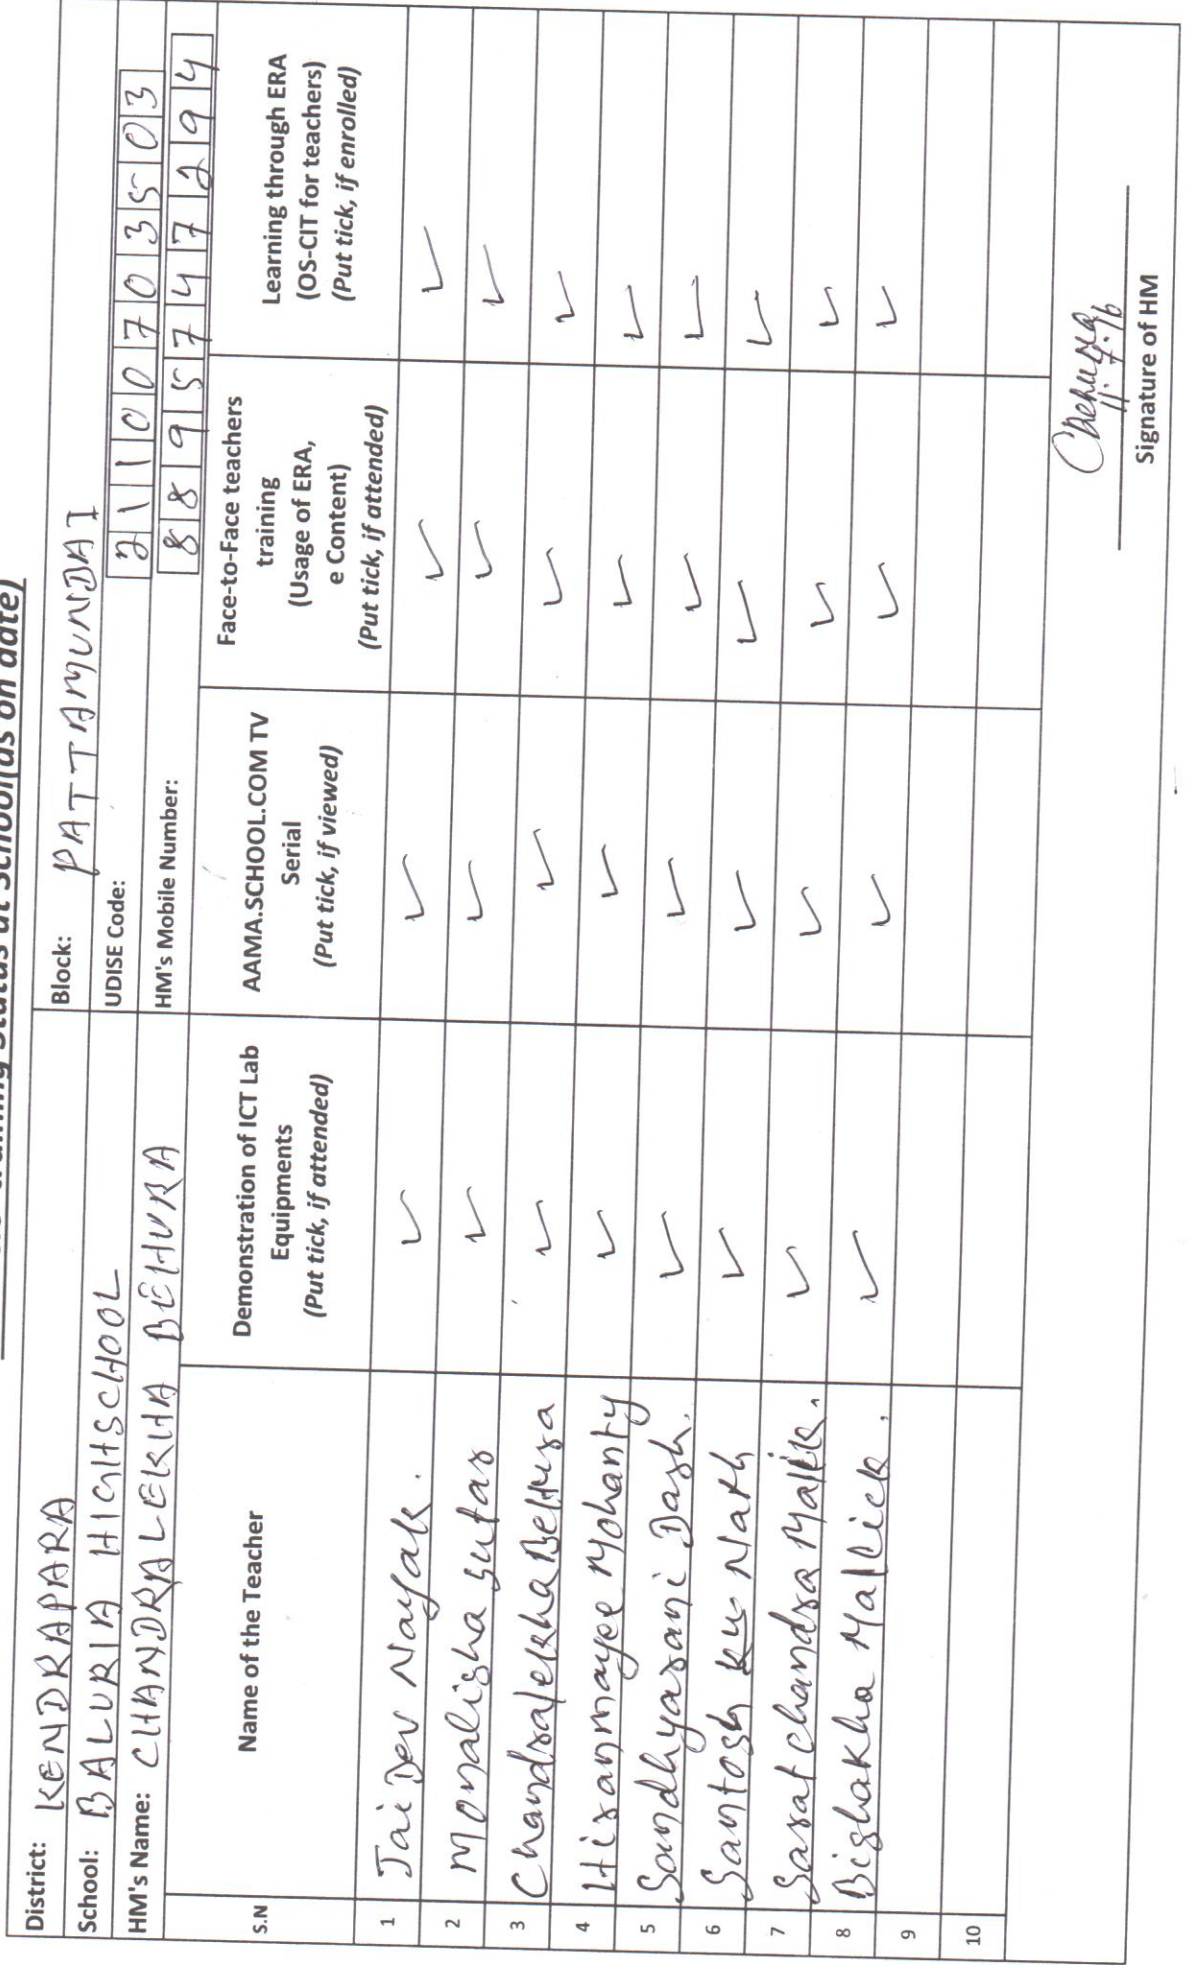 Training Status at School(as on date)
District: KENDRAPARA Block: PATTAMUNDAI
School: BALURIA HIGHSCHOOL UDISE Code: 21100703503
HM's Name: CHANDRALEKHA BEHURA HM's Mobile Number: 8895747294
S.N Name of the Teacher Demonstration of ICT Lab Equipments (Put tick, if attended) AAMA.SCHOOL.COM TV Serial (Put tick, if viewed) Face-to-Face teachers training (Usage of ERA, e Content) (Put tick, if attended) Learning through ERA (OS-CIT for teachers) (Put tick, if enrolled)
1 Jai Dev Nayak. ✓ ✓ ✓ ✓
2 Monalisha Sutar ✓ ✓ ✓ ✓
3 Chandralekha Behura ✓ ✓ ✓ ✓
4 Hiranmayee Mohanty ✓ ✓ ✓ ✓
5 Sandhyarani Dash. ✓ ✓ ✓ ✓
6 Santosh Ku Nath ✓ ✓ ✓ ✓
7 Sarat chandra Malik. ✓ ✓ ✓ ✓
8 Bishakha Mallick. ✓ ✓ ✓ ✓
9
10
CBehura
Signature of HM